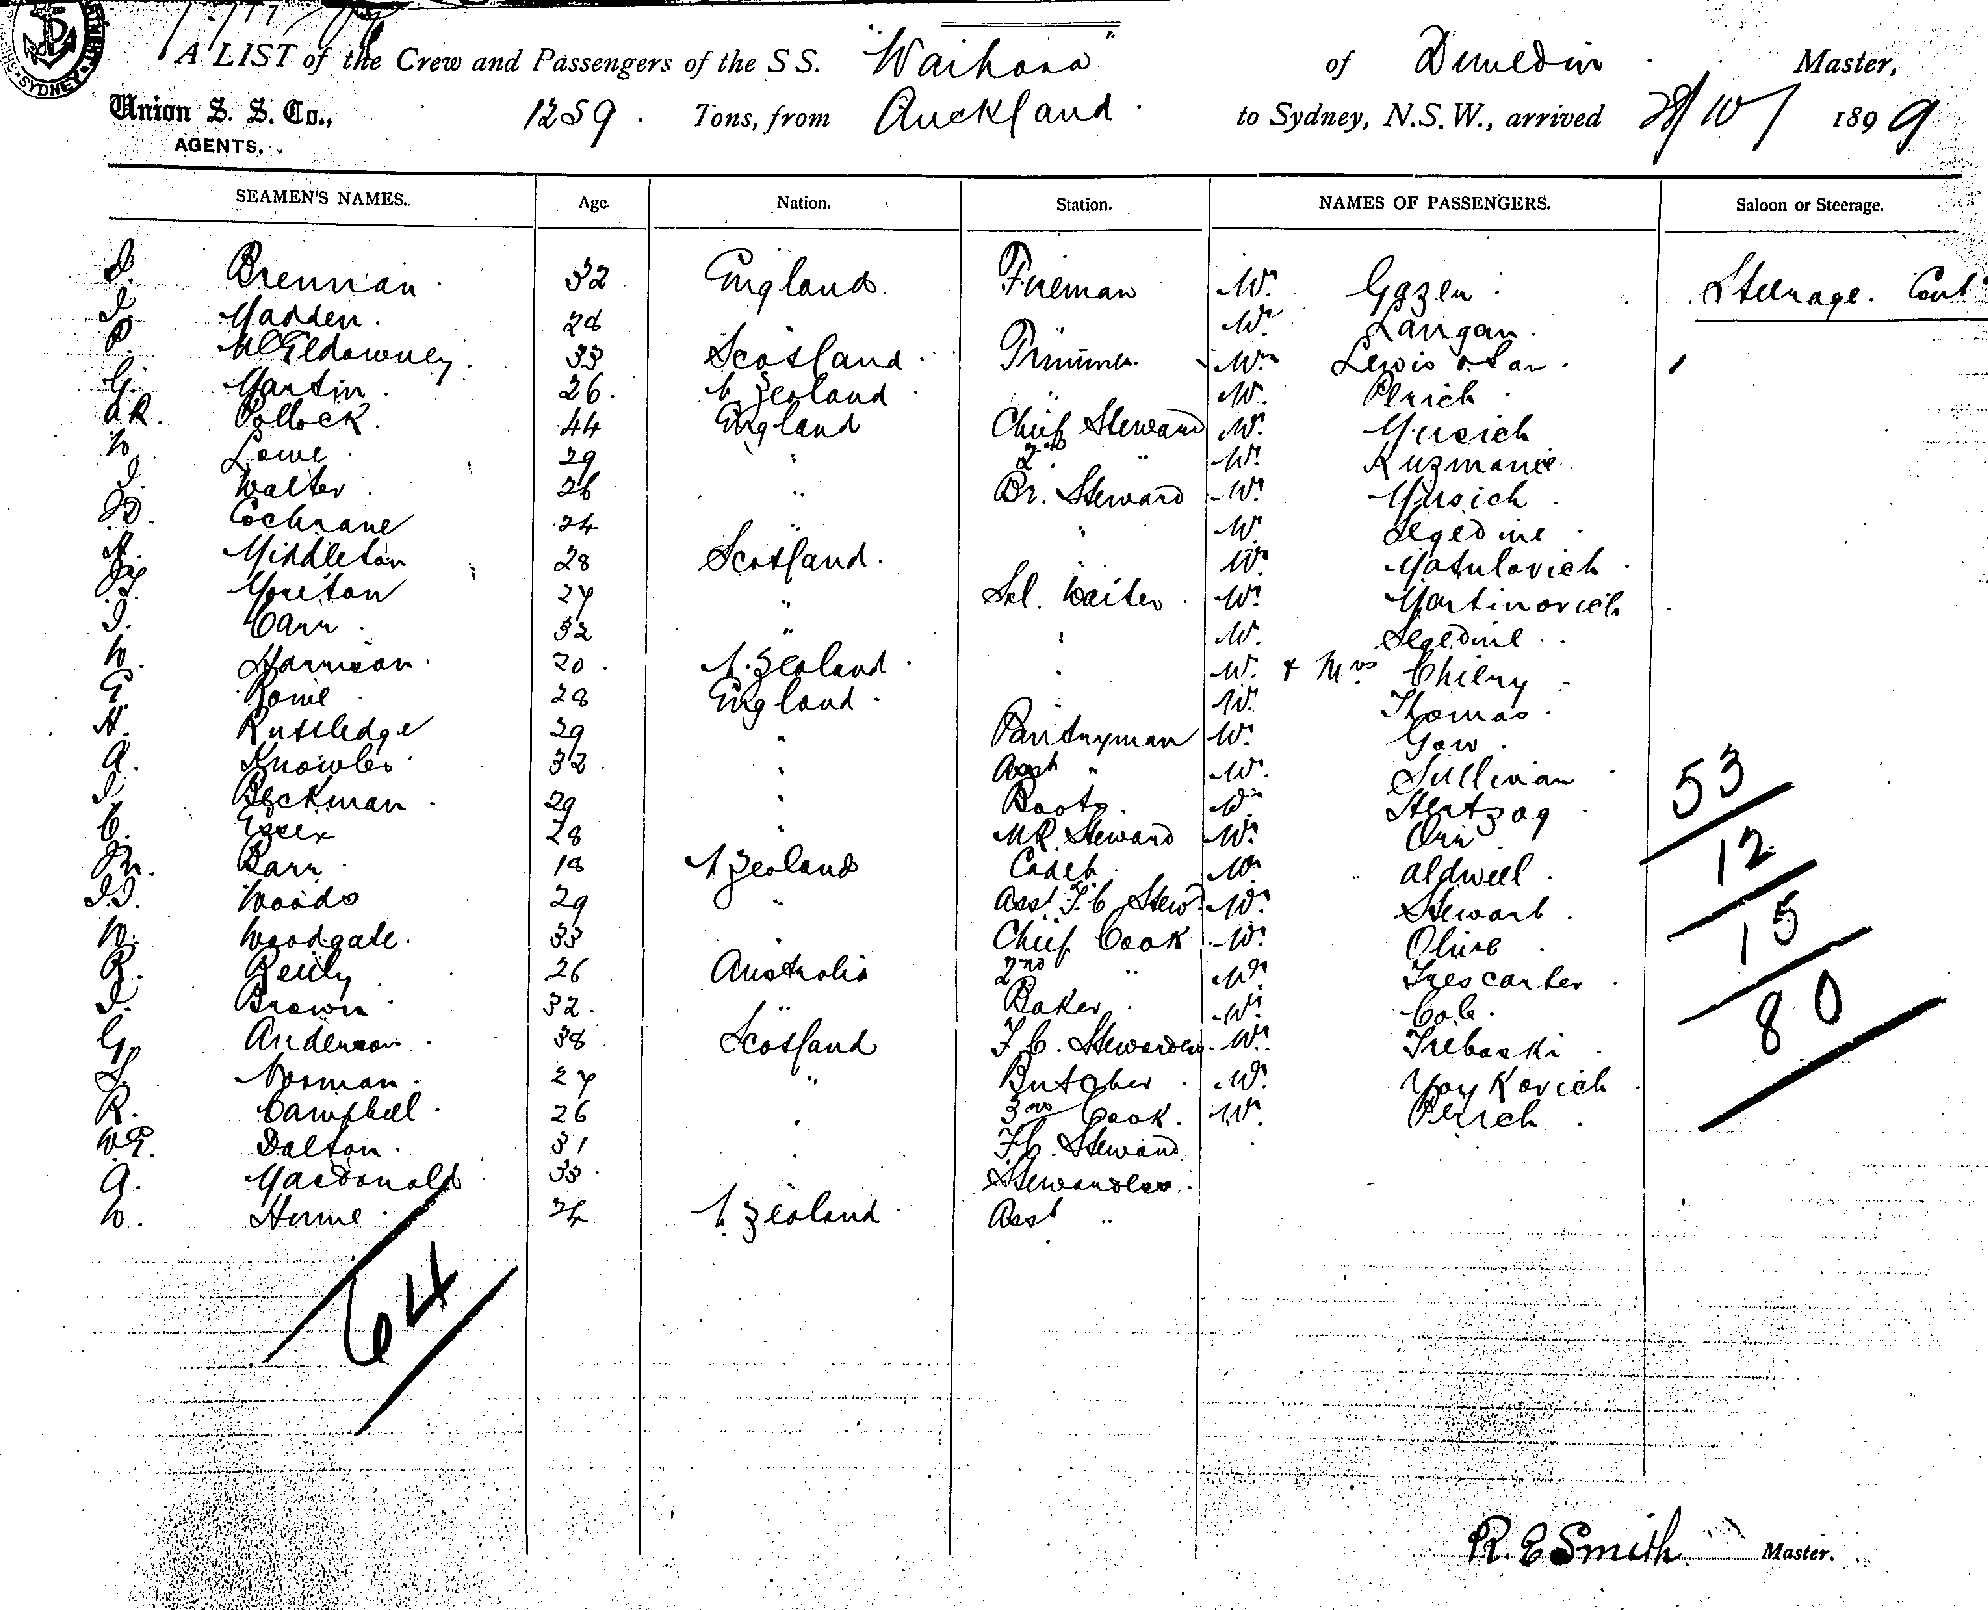 A LIST of the Crew and Passengers of the SS. "Waihora" of Dunedin Master,
Union S. S. Co., 1259 Tons, from Auckland to Sydney, N.S.W., arrived 28/10/1899
AGENTS.
SEAMEN'S NAMES. Age. Nation. Station. NAMES OF PASSENGERS. Saloon or Steerage.
J. Brennan 32 England Fireman Mr. Gozen Steerage. Cont
J. Madden 28 " " Mr. Langan
P. McEldowney 33 Scotland Trimmer Mr. Lewis & Son
G. Martin 26 N. Zealand " Mr. Perich
Pollock 44 England Chief Steward Mr. Mursich
W. Lowe 29 " 2nd " Mr. Kuzmanic
J. Walter 26 " Br. Steward Mr. Mursich
B. Cochrane 24 " " Mr. Segedine
A. Middleton 28 Scotland Mr. Matulovich
Moreton 27 " Sal. Waiter Mr. Martinovich
J. Carr 32 " " Mr. Segedine
W. Harrison 20 N. Zealand " Mr. & Mrs Chilry
E. Rowe 28 England Mr. Thomas
H. Ruttledge 29 " Pantryman Mr. Gow
A. Knowles 32 " Asst " Mr. Sullivan
J. Beckman 29 " Boots Mr. Hertzog
C. Essex 28 " M.R. Steward Mr. Orr
M. Barr 18 N Zealand Cadet Mr. Aldwell
J.J. Woods 29 " Asst F.C. Stew. Mr. Stewart
W. Woodgate 33 " Chief Cook Mr. Olive
R. Reily 26 Australia 2nd " Mr. Trescarter
J. Brown 32 " Baker Mr. Cole
G. Anderson 38 Scotland F.C. Stewardess Mr. Treboski
Norman 27 " Butcher Mr. Yoykovich
R. Campbell 26 " 3rd Cook Mr. Perich
W.E. Dalton 31 " F.C. Steward
A. Macdonald 33 Stewardess
W. Horne 24 N. Zealand Asst "
64
53
12
15
80
R. E Smith Master.